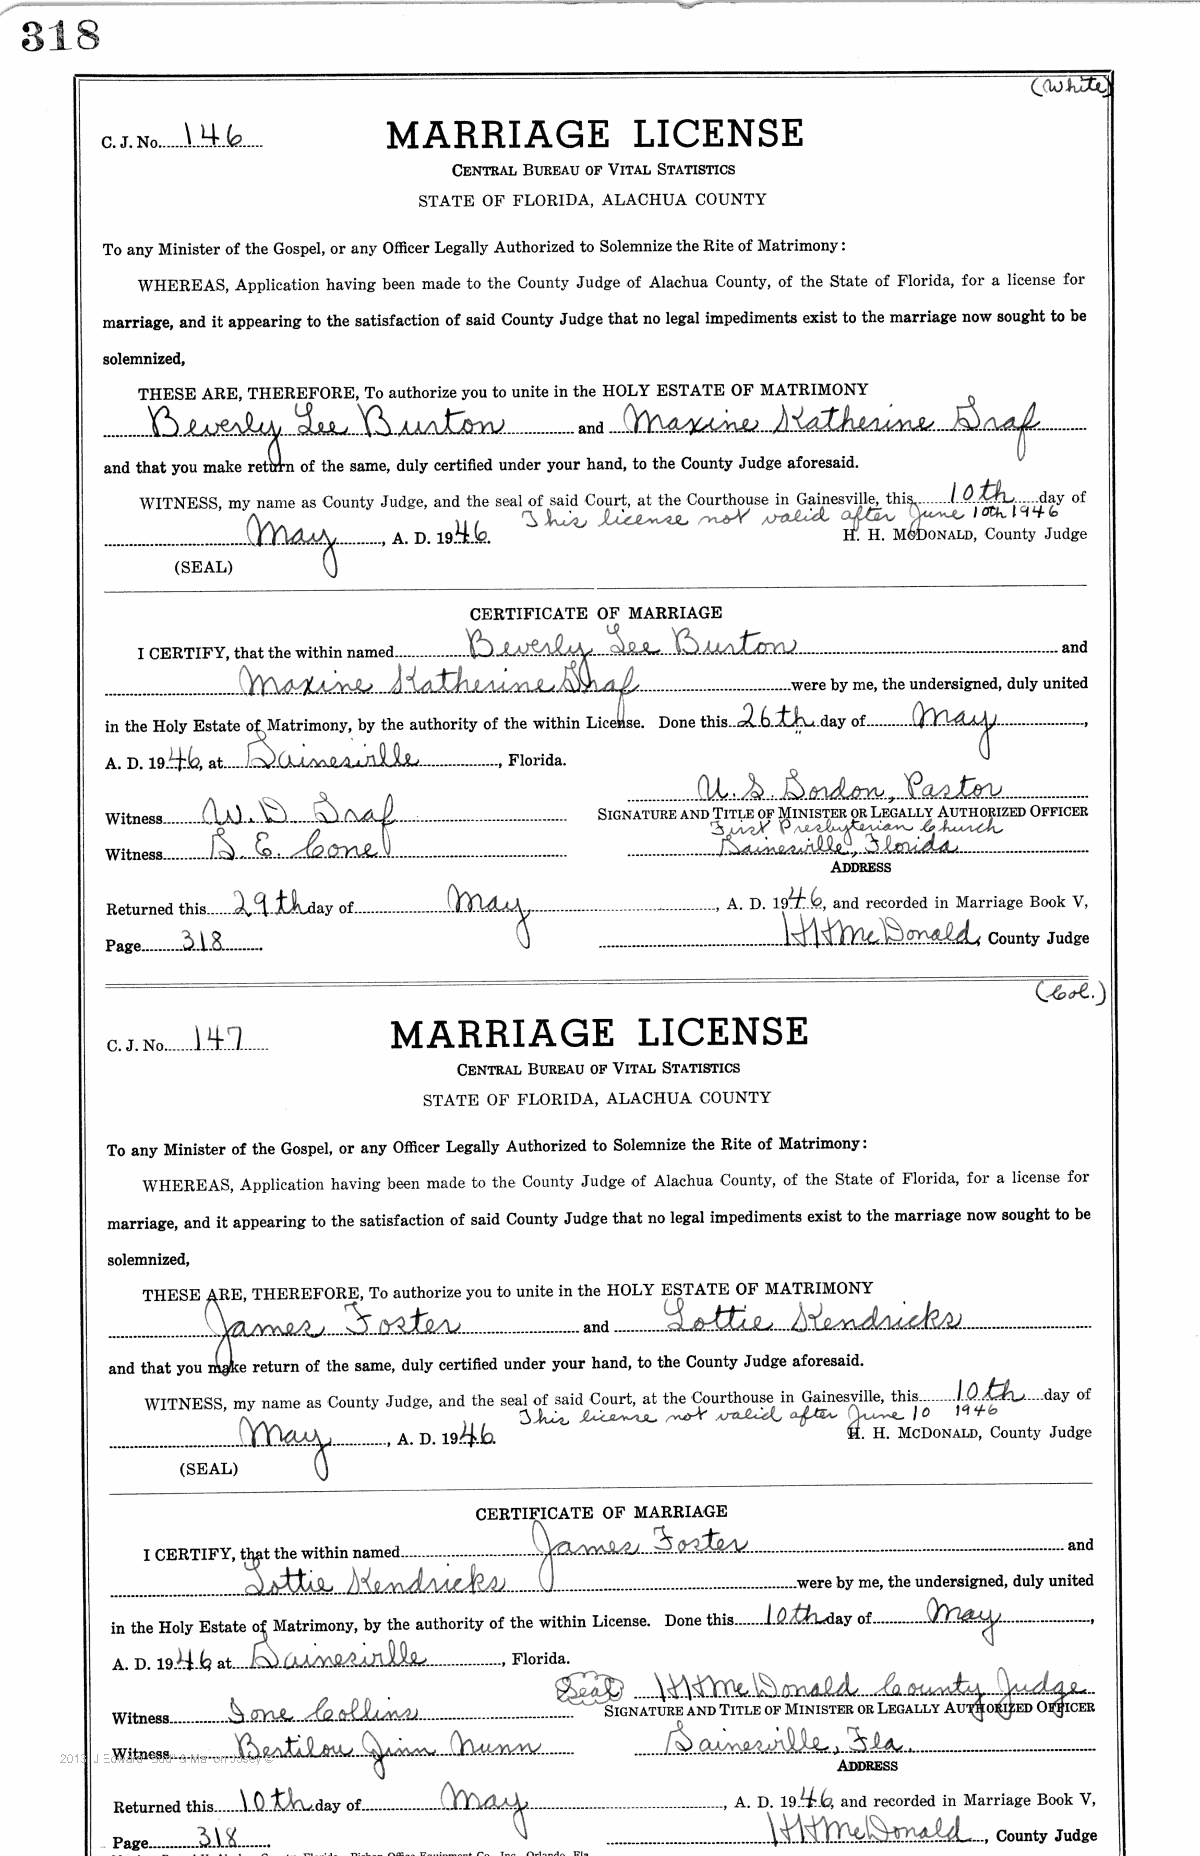 318
(White)
C. J. No. 146
MARRIAGE LICENSE
CENTRAL BUREAU OF VITAL STATISTICS
STATE OF FLORIDA, ALACHUA COUNTY
To any Minister of the Gospel, or any Officer Legally Authorized to Solemnize the Rite of Matrimony:
WHEREAS, Application having been made to the County Judge of Alachua County, of the State of Florida, for a license for
marriage, and it appearing to the satisfaction of said County Judge that no legal impediments exist to the marriage now sought to be
solemnized,
THESE ARE, THEREFORE, To authorize you to unite in the HOLY ESTATE OF MATRIMONY
Beverly Lee Burton and Maxine Katherine Graf
and that you make return of the same, duly certified under your hand, to the County Judge aforesaid.
WITNESS, my name as County Judge, and the seal of said Court, at the Courthouse in Gainesville, this 10th day of
This license not valid after June 10th 1946
May, A. D. 1946. H. H. MCDONALD, County Judge
(SEAL)
CERTIFICATE OF MARRIAGE
I CERTIFY, that the within named Beverly Lee Burton and
Maxine Katherine Graf were by me, the undersigned, duly united
in the Holy Estate of Matrimony, by the authority of the within License. Done this 26th day of May,
A. D. 1946, at Gainesville, Florida.
U. S. Gordon, Pastor
Witness W. D. Graf SIGNATURE AND TITLE OF MINISTER OR LEGALLY AUTHORIZED OFFICER
First Presbyterian Church
Witness G. E. Cone Gainesville, Florida
ADDRESS
Returned this 29th day of May, A. D. 1946, and recorded in Marriage Book V,
Page 318 HHMcDonald, County Judge
(Col.)
C. J. No. 147
MARRIAGE LICENSE
CENTRAL BUREAU OF VITAL STATISTICS
STATE OF FLORIDA, ALACHUA COUNTY
To any Minister of the Gospel, or any Officer Legally Authorized to Solemnize the Rite of Matrimony:
WHEREAS, Application having been made to the County Judge of Alachua County, of the State of Florida, for a license for
marriage, and it appearing to the satisfaction of said County Judge that no legal impediments exist to the marriage now sought to be
solemnized,
THESE ARE, THEREFORE, To authorize you to unite in the HOLY ESTATE OF MATRIMONY
James Foster and Lottie Kendricks
and that you make return of the same, duly certified under your hand, to the County Judge aforesaid.
WITNESS, my name as County Judge, and the seal of said Court, at the Courthouse in Gainesville, this 10th day of
This license not valid after June 10 1946
May, A. D. 1946. H. H. MCDONALD, County Judge
(SEAL)
CERTIFICATE OF MARRIAGE
I CERTIFY, that the within named James Foster and
Lottie Kendricks were by me, the undersigned, duly united
in the Holy Estate of Matrimony, by the authority of the within License. Done this 10th day of May,
A. D. 1946 at Gainesville, Florida.
Seal HHMcDonald County Judge
Witness Ione Collins SIGNATURE AND TITLE OF MINISTER OR LEGALLY AUTHORIZED OFFICER
Witness Bertilou Jinn Nunn Gainesville, Fla.
ADDRESS
Returned this 10th day of May, A. D. 1946, and recorded in Marriage Book V,
Page 318. HHMcDonald, County Judge